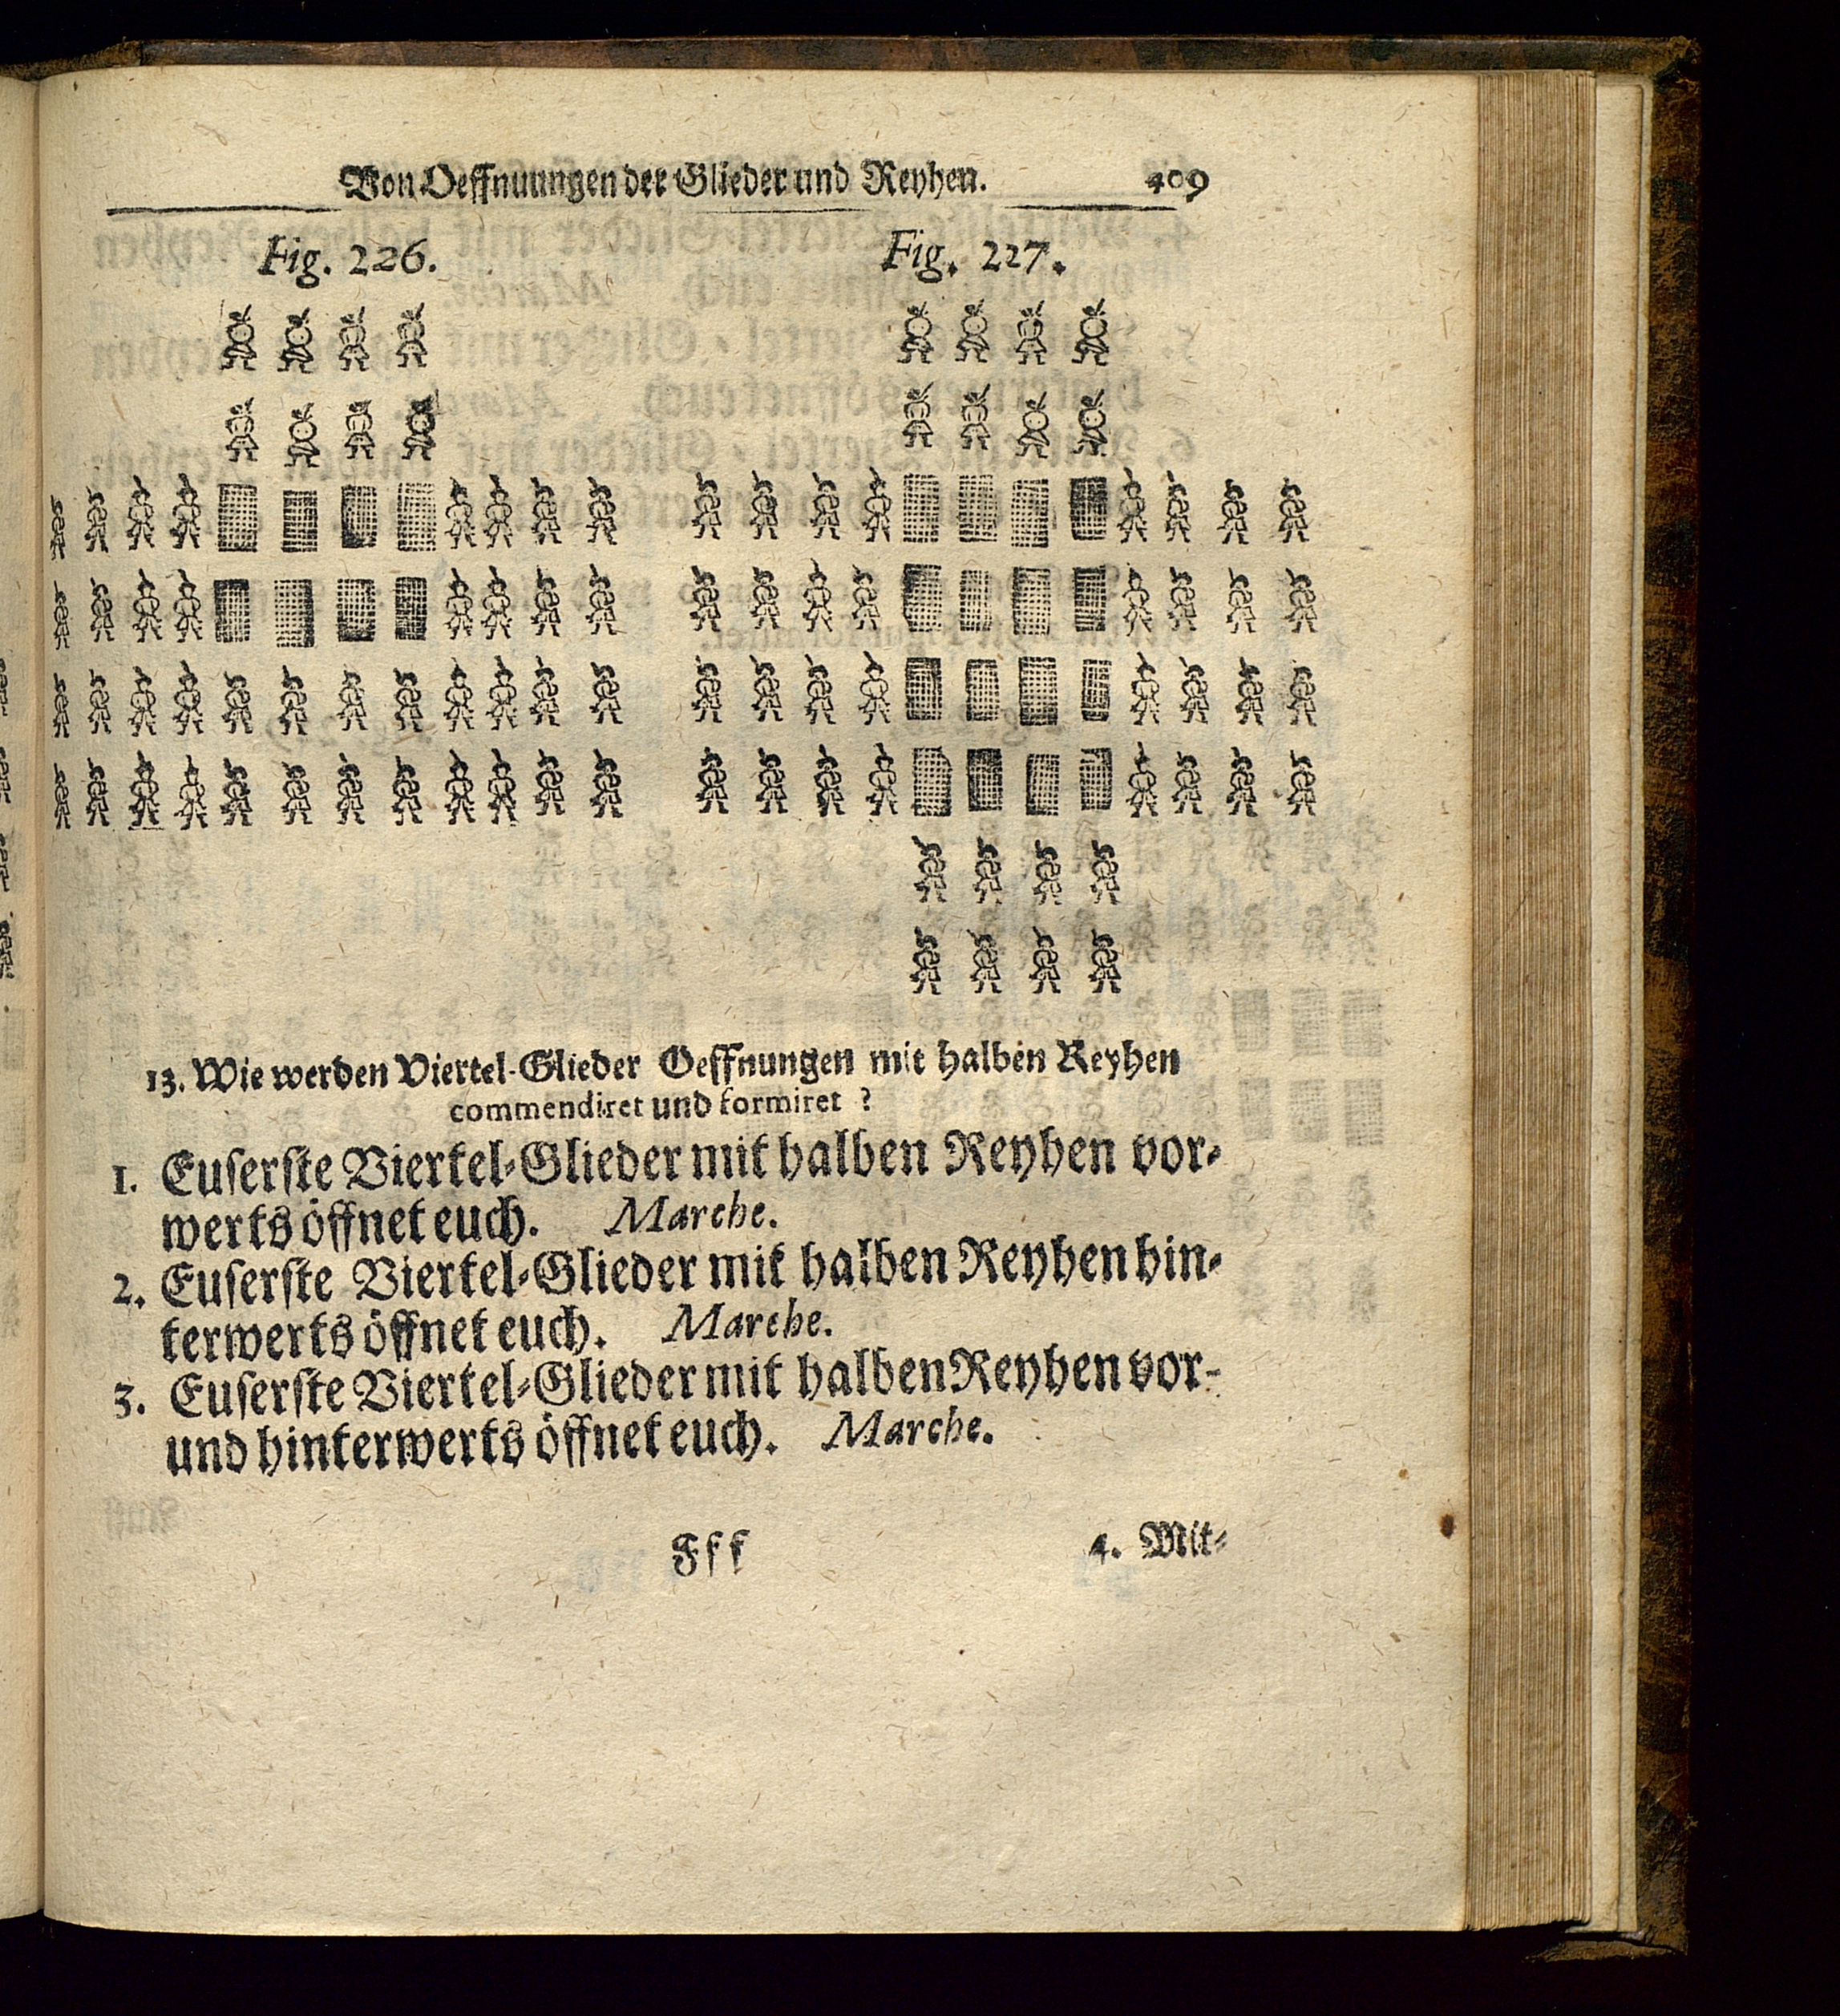 Von Oeffnuungen der Glieder und Reyhen. 409
Fig. 226. Fig. 227.
13. Wie werden Viertel-Glieder Oeffnungen mit halben Reyhen
commendiret und formiret ?
1. Euserste Viertel-Glieder mit halben Reyhen vor-
werts öffnet euch. Marche.
2. Euserste Viertel-Glieder mit halben Reyhen hin-
terwerts öffnet euch. Marche.
3. Euserste Viertel-Glieder mit halben Reyhen vor-
und hinterwerts öffnet euch. Marche.
Fff 4. Mit-